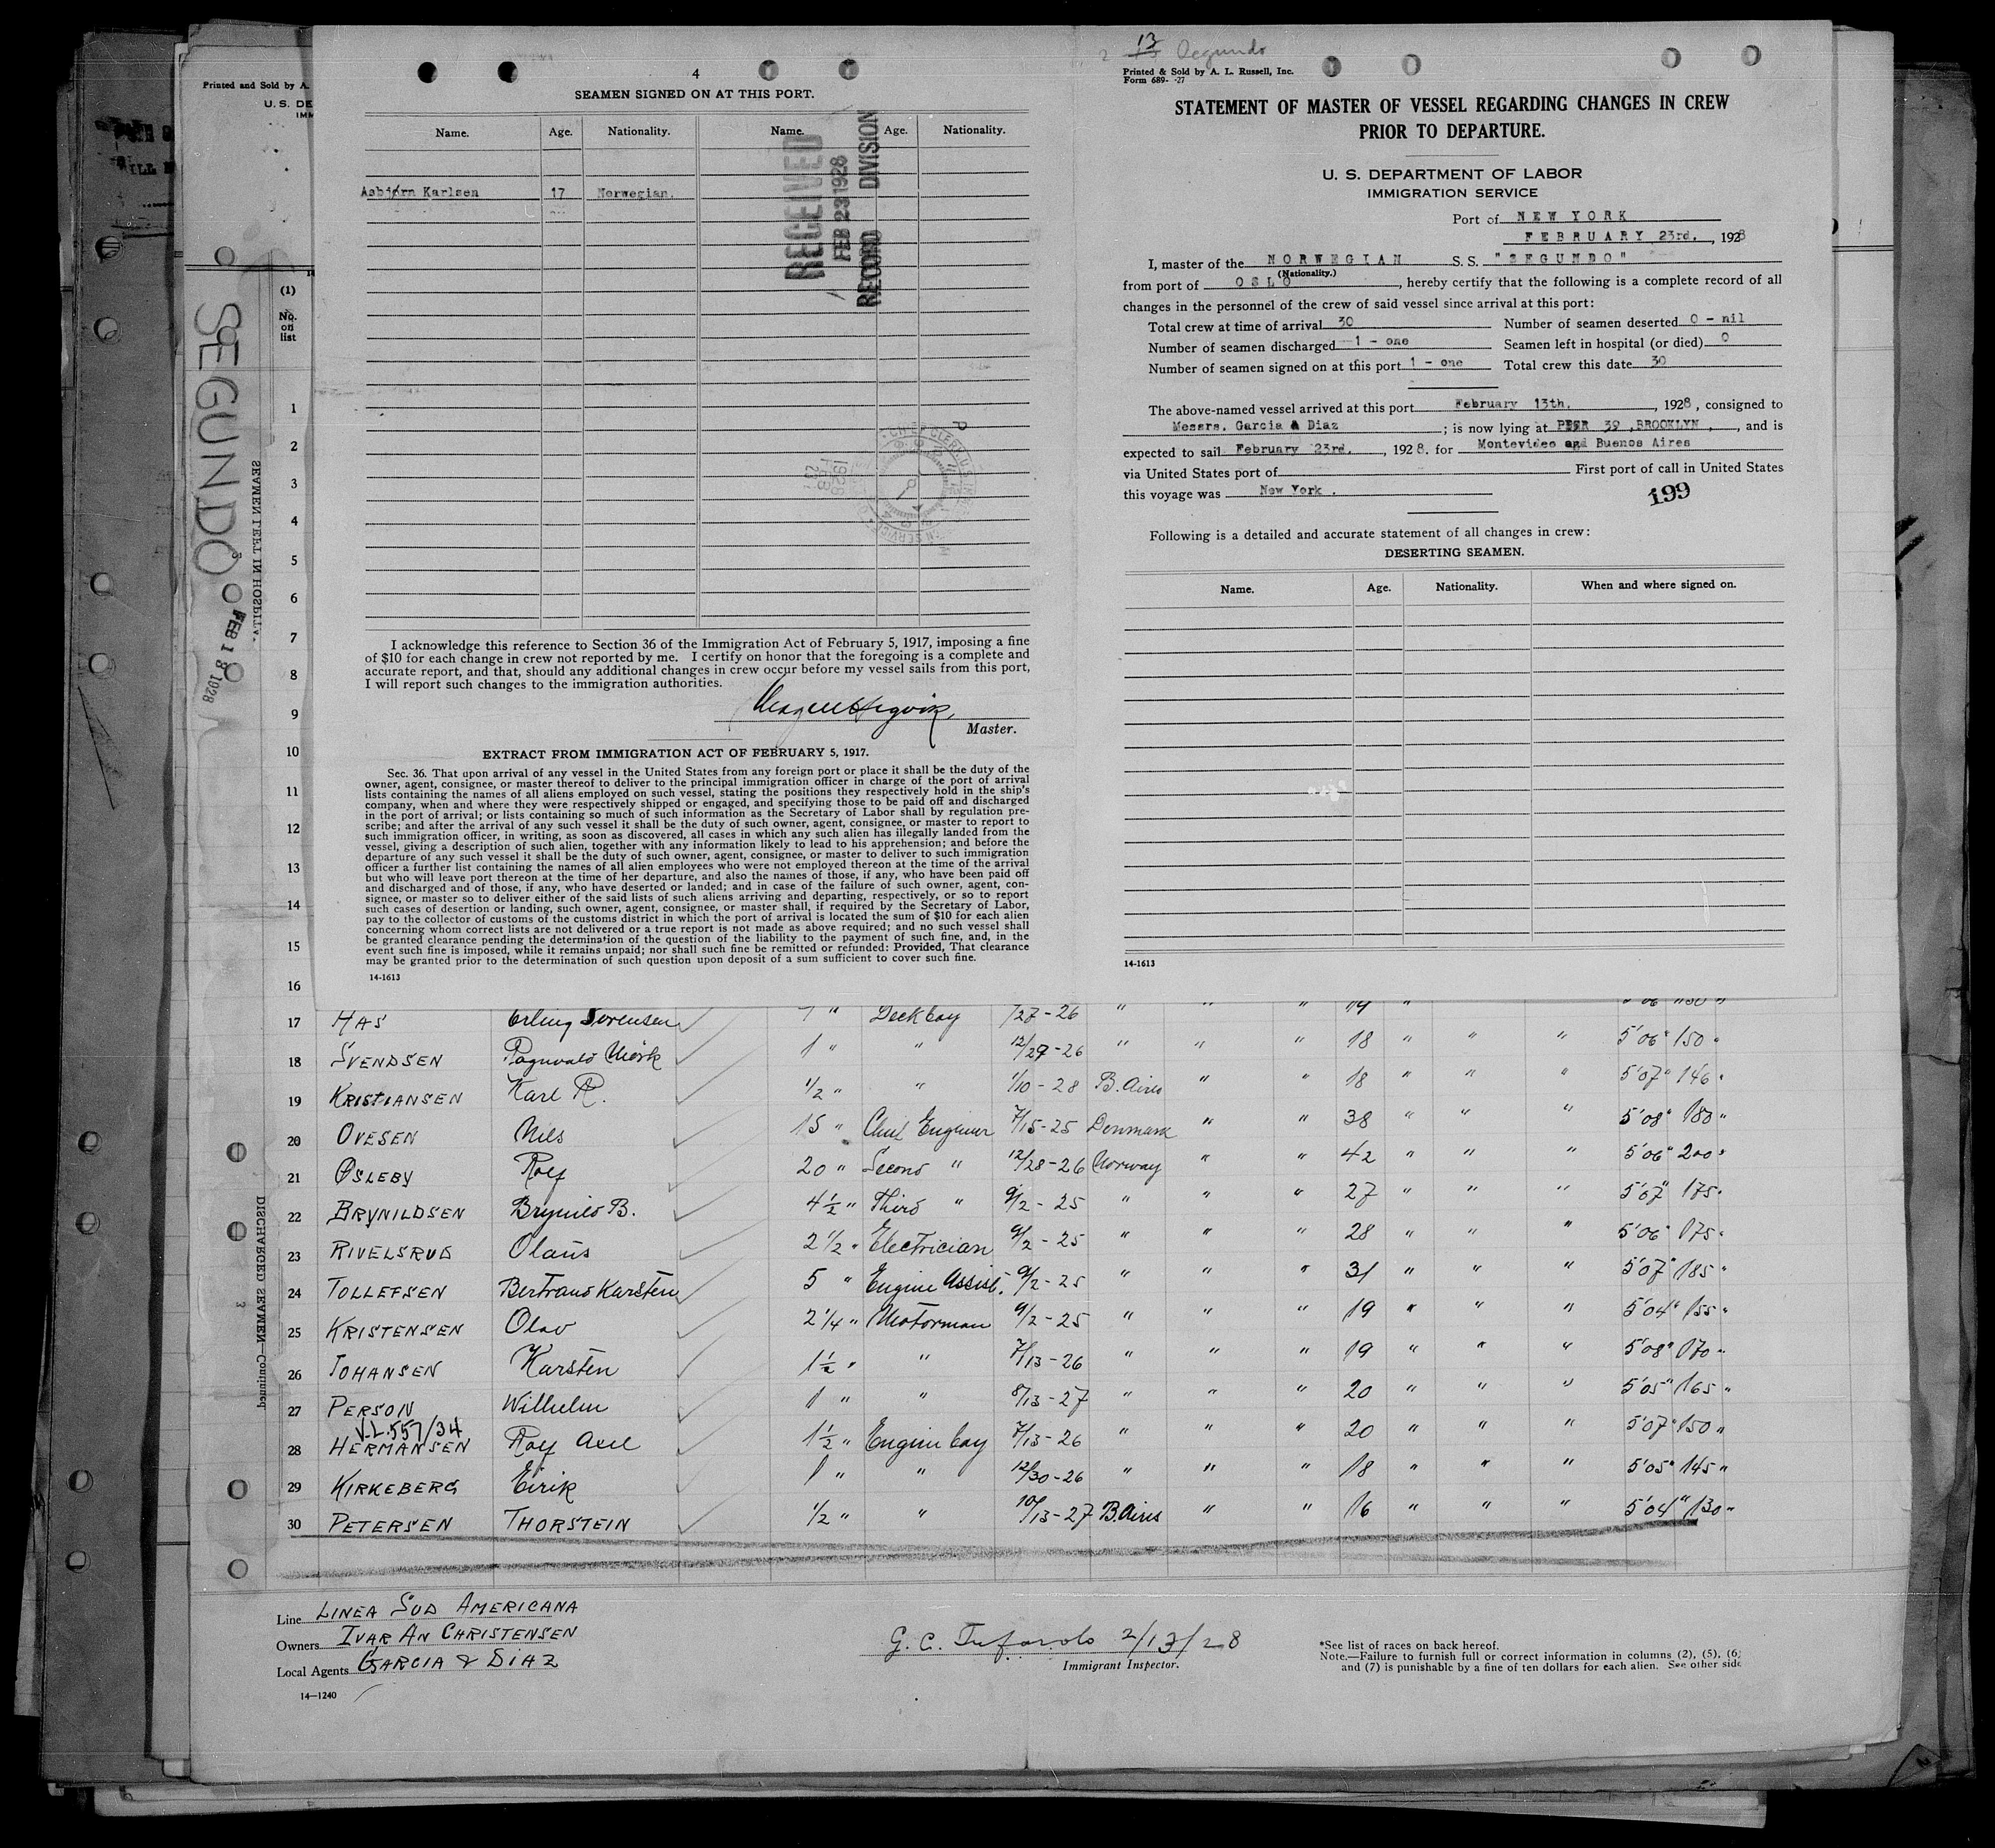 4
SEAMEN SIGNED ON AT THIS PORT.
Name. Age. Nationality. Name. Age. Nationality.
Asbjørn Karlsen 17 Norwegian.
RECEIVED
FEB 23 1928
RECORD DIVISION
I acknowledge this reference to Section 36 of the Immigration Act of February 5, 1917, imposing a fine
of $10 for each change in crew not reported by me. I certify on honor that the foregoing is a complete and
accurate report, and that, should any additional changes in crew occur before my vessel sails from this port,
I will report such changes to the immigration authorities.
Master.
EXTRACT FROM IMMIGRATION ACT OF FEBRUARY 5, 1917.
Sec. 36. That upon arrival of any vessel in the United States from any foreign port or place it shall be the duty of the
owner, agent, consignee, or master thereof to deliver to the principal immigration officer in charge of the port of arrival
lists containing the names of all aliens employed on such vessel, stating the positions they respectively hold in the ship's
company, when and where they were respectively shipped or engaged, and specifying those to be paid off and discharged
in the port of arrival; or lists containing so much of such information as the Secretary of Labor shall by regulation pre-
scribe; and after the arrival of any such vessel it shall be the duty of such owner, agent, consignee, or master to report to
such immigration officer, in writing, as soon as discovered, all cases in which any such alien has illegally landed from the
vessel, giving a description of such alien, together with any information likely to lead to his apprehension; and before the
departure of any such vessel it shall be the duty of such owner, agent, consignee, or master to deliver to such immigration
officer a further list containing the names of all alien employees who were not employed thereon at the time of the arrival
but who will leave port thereon at the time of her departure, and also the names of those, if any, who have been paid off
and discharged and of those, if any, who have deserted or landed; and in case of the failure of such owner, agent, con-
signee, or master so to deliver either of the said lists of such aliens arriving and departing, respectively, or so to report
such cases of desertion or landing, such owner, agent, consignee, or master shall, if required by the Secretary of Labor,
pay to the collector of customs of the customs district in which the port of arrival is located the sum of $10 for each alien
concerning whom correct lists are not delivered or a true report is not made as above required; and no such vessel shall
be granted clearance pending the determination of the question of the liability to the payment of such fine, and, in the
event such fine is imposed, while it remains unpaid; nor shall such fine be remitted or refunded: Provided, That clearance
may be granted prior to the determination of such question upon deposit of a sum sufficient to cover such fine.
14-1613
13 Segundo
Printed & Sold by A. L. Russell, Inc.
Form 689- -27
STATEMENT OF MASTER OF VESSEL REGARDING CHANGES IN CREW
PRIOR TO DEPARTURE.
U. S. DEPARTMENT OF LABOR
IMMIGRATION SERVICE
Port of NEW YORK
FEBRUARY 23rd. , 1928
I, master of the NORWEGIAN S.S. "SEGUNDO"
(Nationality.)
from port of OSLO , hereby certify that the following is a complete record of all
changes in the personnel of the crew of said vessel since arrival at this port:
Total crew at time of arrival 30 Number of seamen deserted 0 - nil
Number of seamen discharged 1 - one Seamen left in hospital (or died) 0
Number of seamen signed on at this port 1 - one Total crew this date 30
The above-named vessel arrived at this port February 13th. , 1928, consigned to
Messrs. Garcia & Diaz ; is now lying at PIER 39 ,BROOKLYN , and is
expected to sail February 23rd. , 1928. for Montevideo and Buenos Aires
via United States port of First port of call in United States
this voyage was New York .
199
Following is a detailed and accurate statement of all changes in crew:
DESERTING SEAMEN.
Name. Age. Nationality. When and where signed on.
14-1613
Printed and Sold by A.
U. S. DE
IMM
(1)
No. on list
SEGUNDO
FEB 18 1928
SEAMEN LEFT IN HOSPITA
DISCHARGED SEAMEN—Continued.
3
1
2
3
4
5
6
7
8
9
10
11
12
13
14
15
16
17 HAS Erling Sorensen 1 " Deckboy /27-26 " " " 19 "
18 SVENDSEN Ragnvald Mörk 1 " " 12/29-26 " " " 18 " " " 5'06" 150 "
19 KRISTIANSEN Karl R. 1/2 " " 1/10-28 B. Aires " " 18 " " " 5'07" 146 "
20 OVESEN Nils 15 " Chief Engineer 7/15-25 Denmark " " 38 " " " 5'08" 180 "
21 OSLEBY Rolf 20 " Second " 12/28-26 Norway " " 42 " " " 5'06" 200 "
22 BRYNILDSEN Brynild B. 4 1/2 " Third " 9/2-25 " " " 27 " " " 5'07" 175 "
23 RIVELSRUD Olaus 2 1/2 " Electrician 9/2-25 " " " 28 " " " 5'06" 175 "
24 TOLLEFSEN Bertrand Karsten 5 " Engine Assist. 9/2-25 " " " 31 " " " 5'07" 185 "
25 KRISTENSEN Olav 2 1/4 " Motorman 9/2-25 " " " 19 " " " 5'04" 155 "
26 JOHANSEN Karsten 1 1/2 " " 7/13-26 " " " 19 " " " 5'08" 170 "
27 PERSON Wilhelm 1 " " 8/13-27 " " " 20 " " " 5'05" 165 "
V.L. 557/34
28 HERMANSEN Rolf Axel 1 1/2 " Engine boy 7/13-26 " " " 20 " " " 5'07" 150 "
29 KIRKEBERG Eirik 1 " " 12/30-26 " " " 18 " " " 5'05" 145 "
30 PETERSEN THORSTEIN 1/2 " " 10/13-27 B. Aires " " 16 " " " 5'04" 130 "
Line LINEA SUD AMERICANA
Owners IVAR AN CHRISTENSEN
Local Agents GARCIA & DIAZ
14—1240
2/13/28
Immigrant Inspector.
*See list of races on back hereof.
Note.—Failure to furnish full or correct information in columns (2), (5), (6)
and (7) is punishable by a fine of ten dollars for each alien. See other side